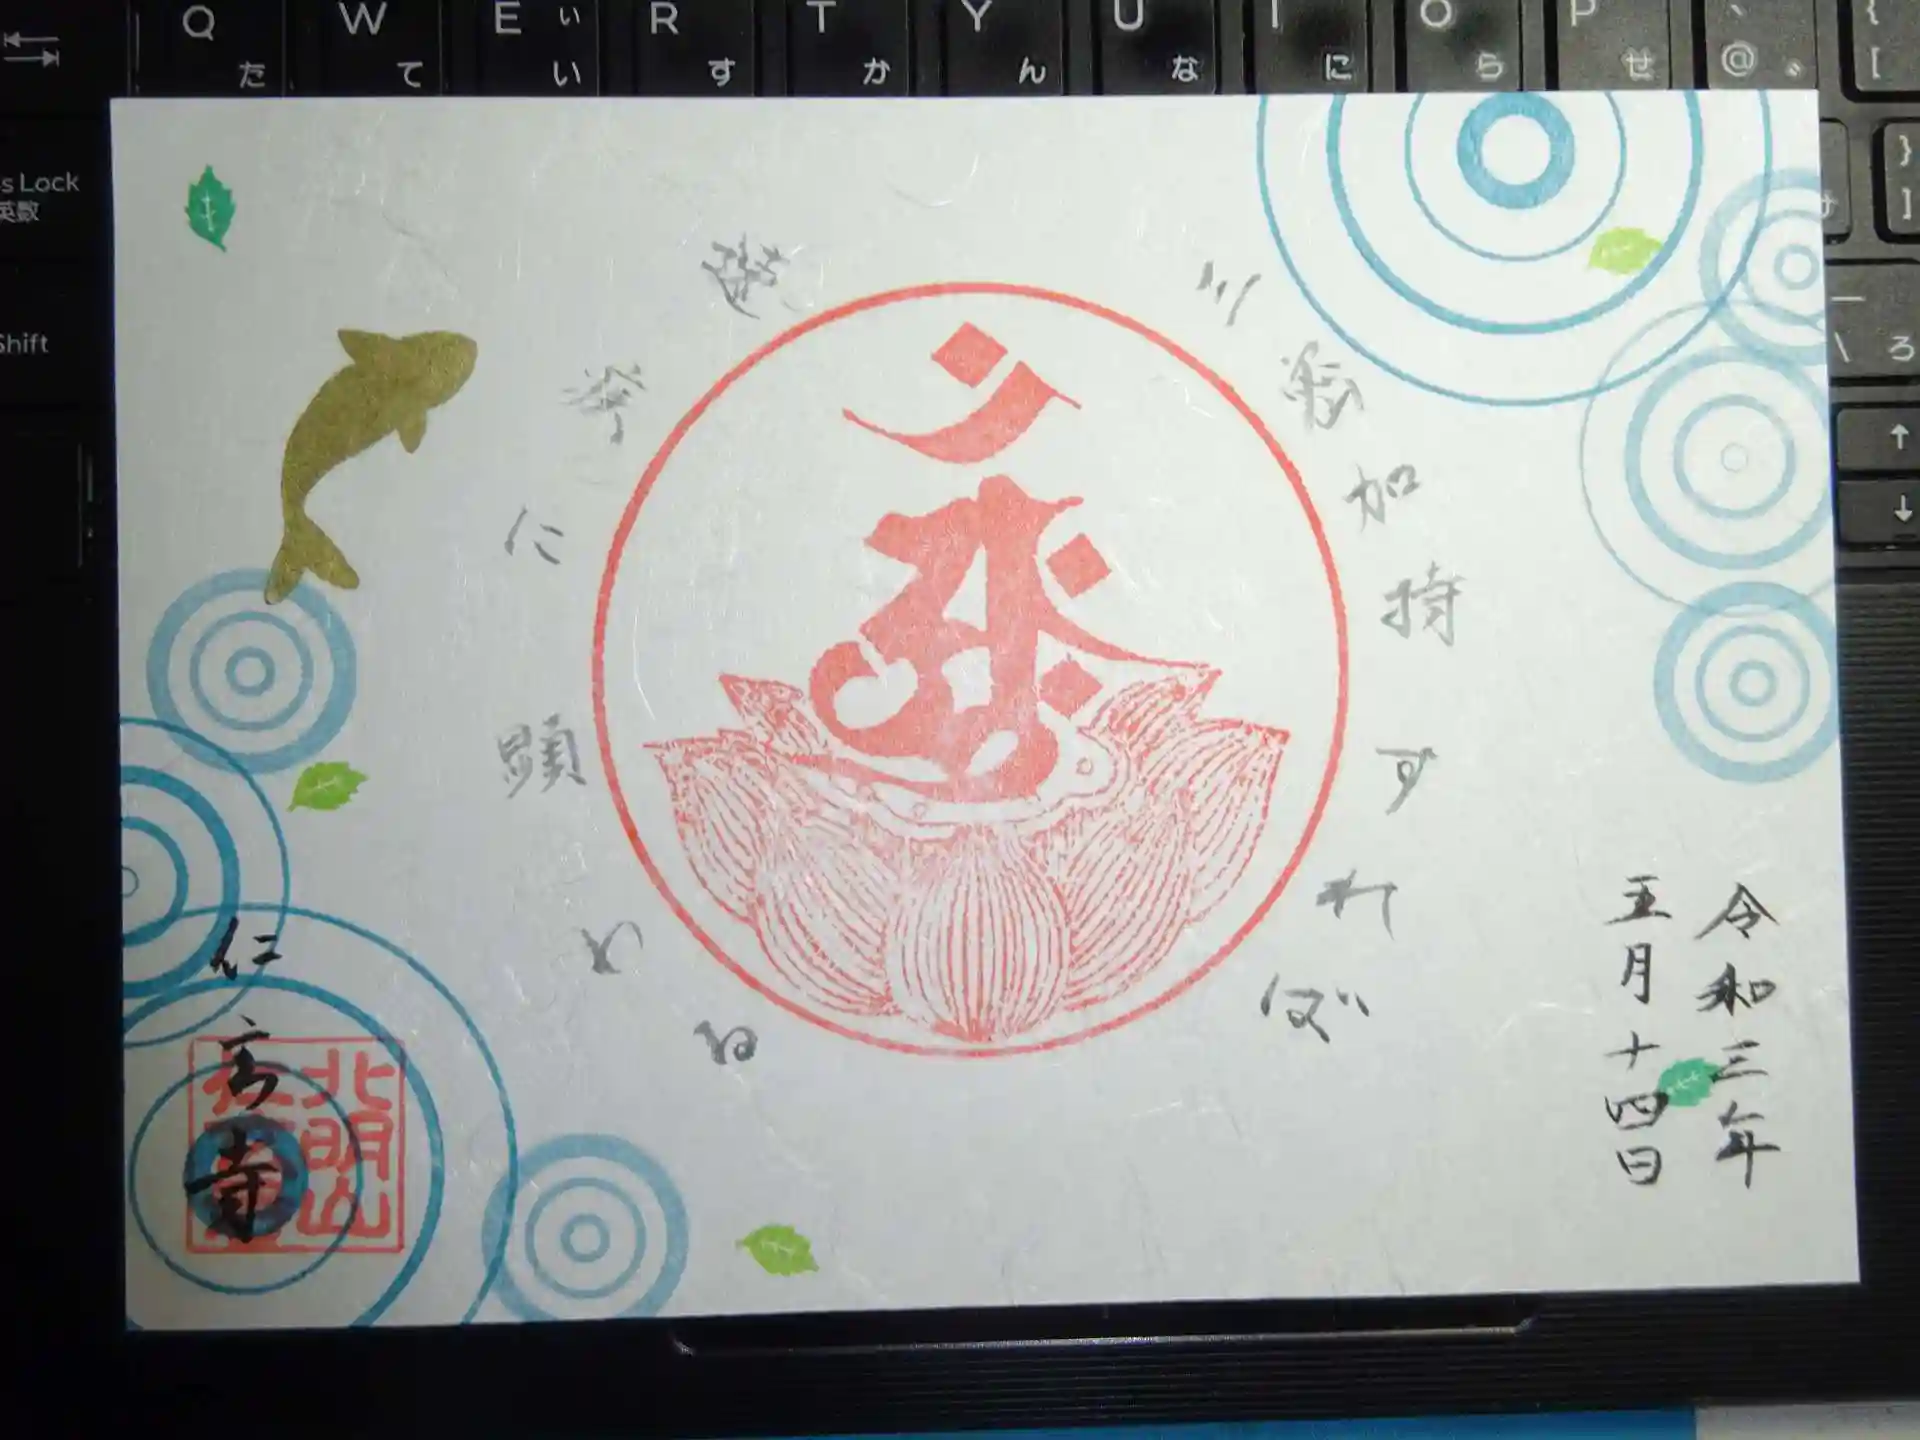 Q W E い R T Y U I O P 、 { 
た て い す か ん な に ら せ @ ゛ [
s Lock
英数
}
]
Shift
\ ろ
↑
↓
三密加持すれば
速疾に顕わる
令和三年
五月十四日
仁玄寺
北明山